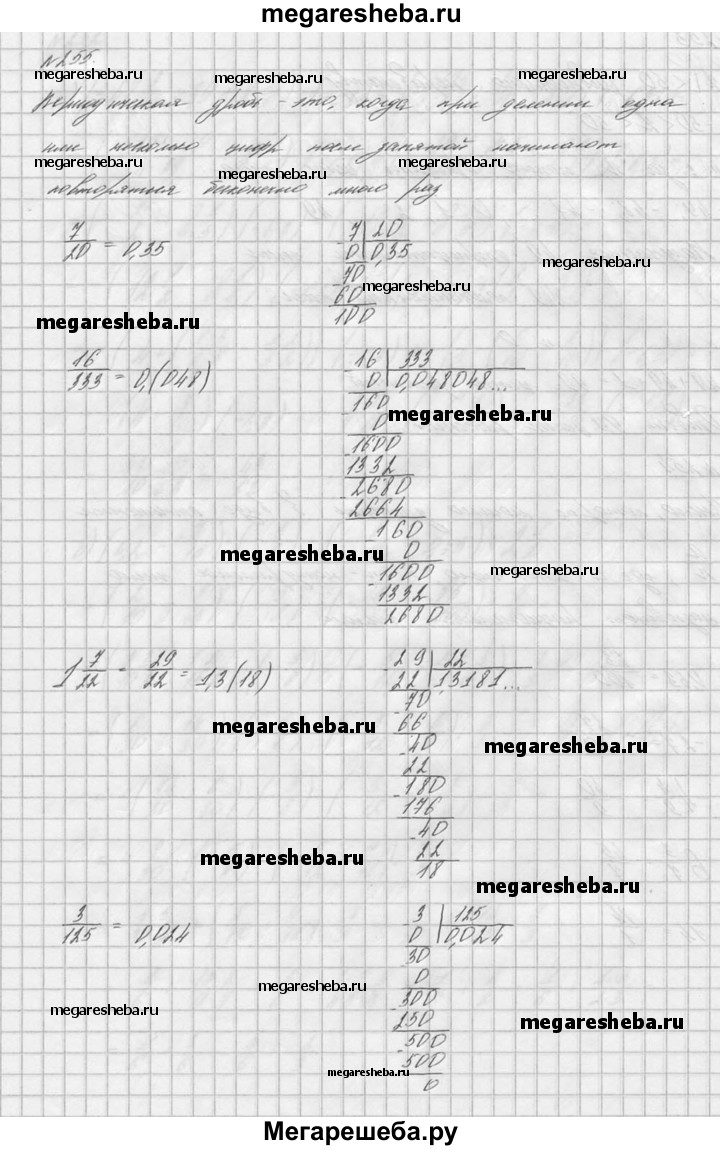 megaresheba.ru
№255.
megaresheba.ru megaresheba.ru megaresheba.ru megaresheba.ru
Периодическая дробь - это, когда при делении одна
или несколько цифр после запятой начинают
megaresheba.ru megaresheba.ru megaresheba.ru
повторяться бесконечно много раз
7/20 = 0,35
7 | 20
0 | 0,35
70
60
100
megaresheba.ru
megaresheba.ru
megaresheba.ru
16/333 = 0,(048)
16 | 333
0 | 0,048048...
160
megaresheba.ru
0
1600
1332
2680
2664
160
megaresheba.ru
0
1600
megaresheba.ru
1332
2680
1 7/22 = 29/22 = 1,3(18)
29 | 22
22 | 1,3181...
70
66
megaresheba.ru
40
megaresheba.ru
22
180
176
40
22
megaresheba.ru
18
megaresheba.ru
3/125 = 0,024
3 | 125
0 | 0,024
30
0
megaresheba.ru
300
megaresheba.ru
250
megaresheba.ru
500
500
megaresheba.ru
0
Мегарешеба.ру